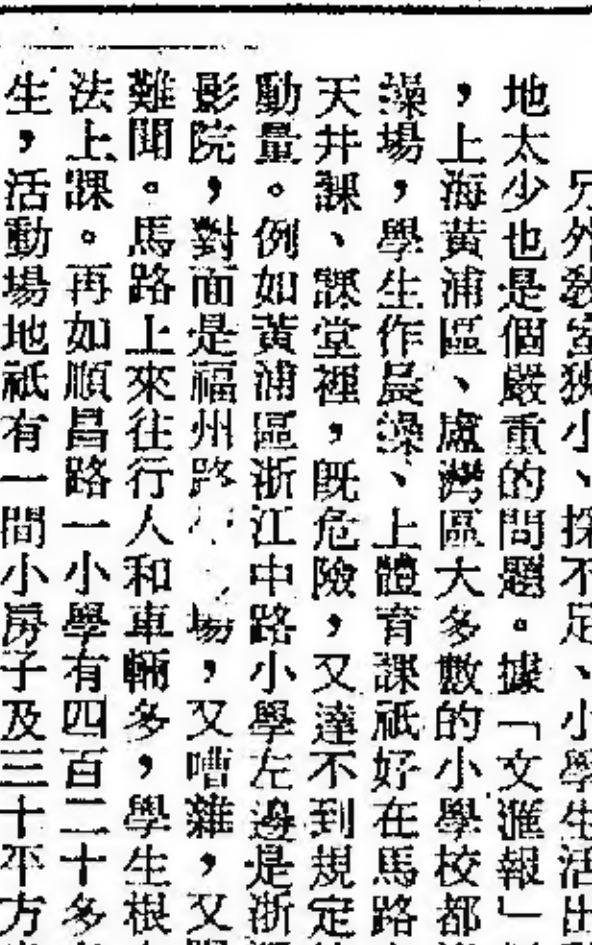 外教室狹小、採不足、小學生活
地太少也是個嚴重的問題。據「文滙報」
，上海黃浦區、盧灣區大多數的小學校都
操場，學生作晨操、上體育課祇好在馬路
天井課、課堂裡，既危險，又達不到規定
動量。例如黃浦區浙江中路小學左邊是浙
影院，對面是福州路 場，又嘈雜，又
難聞。馬路上來往行人和車輛多，學生根
法上課。再如順昌路一小學有四百二十多
生，活動場地祇有一間小房子及三十平方